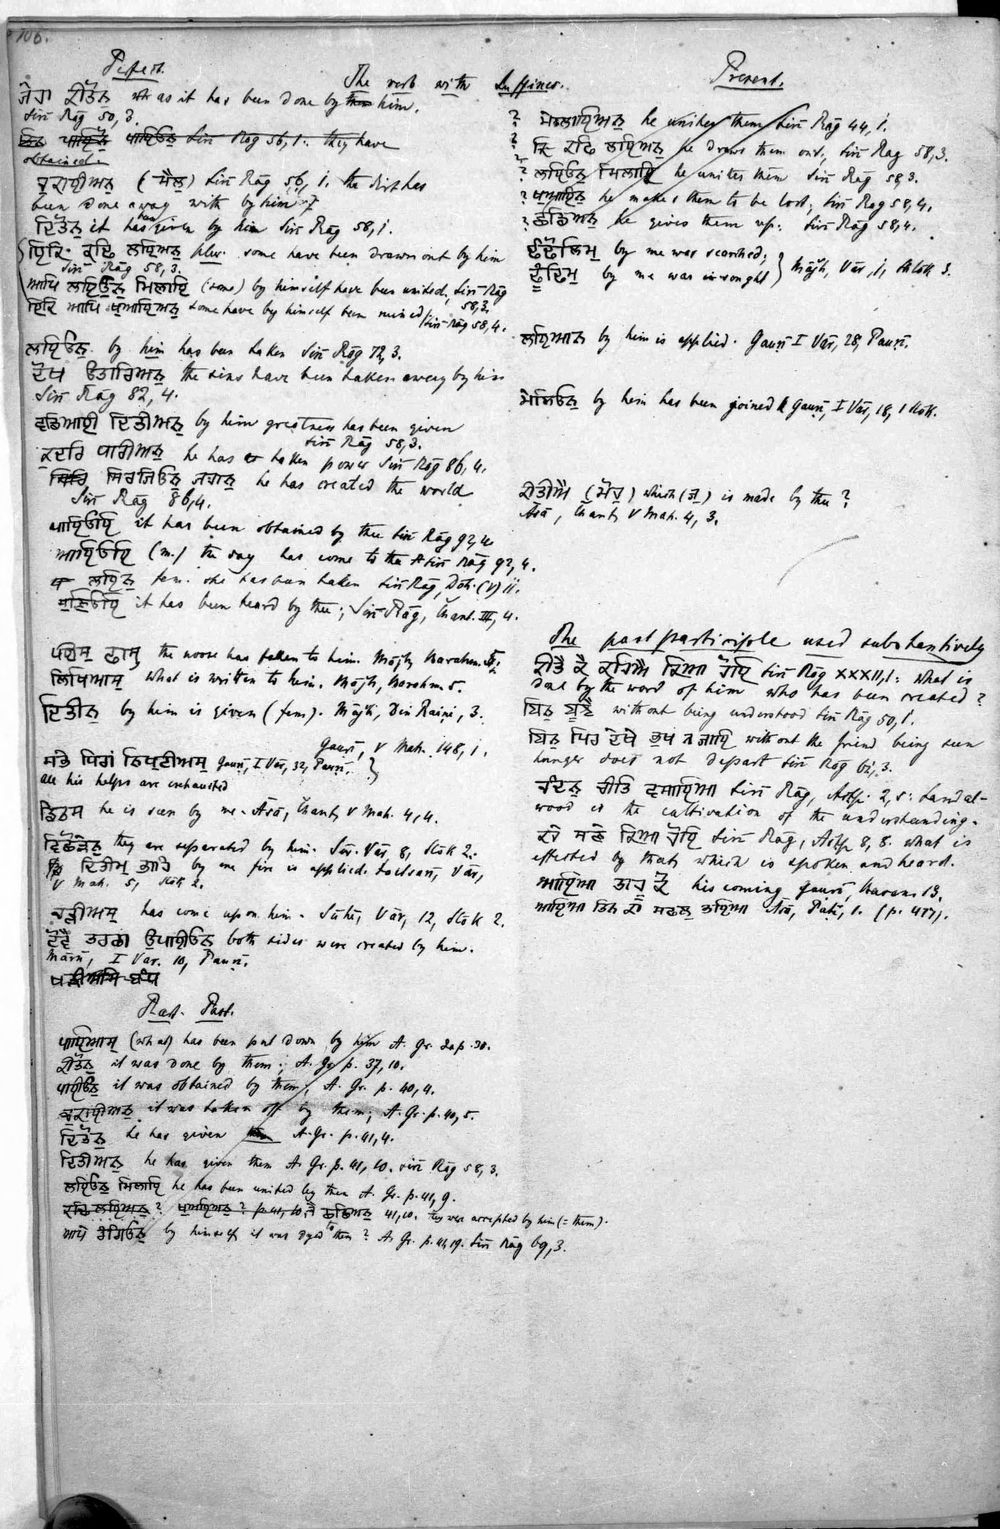 106.
Perfect.
The verb with Suffixes.
ਜੇਹਾ ਕੀਤੋਨੁ as it has been done by him.
Siri Rāg 50, 3.
Siri Rāg 56, 1. they have
obtained
ਚੁਕਾਈਅਨੁ (-ਮੈਲੁ) Siri Rāg 56, 1. the dirt has
been done away with by him
ਦਿਤੋਨੁ it has given by him Siri Rāg 58, 1.
ਇਕਿ ਕਢਿ ਲਇਅਨੁ plur. some have been drawn out by him
Siri Rāg 58, 3.
ਆਪਿ ਲਇਓਨੁ ਮਿਲਾਇ (some) by himself have been united, Siri Rāg
58, 3.
ਇਕਿ ਆਪਿ ਖੁਆਇਅਨੁ some have by himself been ruined Siri Rāg 58, 4.
ਲਇਓਨੁ by him has been taken Siri Rāg 72, 3.
ਦੋਖ ਉਤਾਰਿਅਨੁ the sins have been taken away by him
Siri Rāg 82, 4.
ਵਡਿਆਈ ਦਿਤੀਅਨੁ by him greatness has been given
Siri Rāg 58, 3.
ਕੁਦਰਿ ਧਾਰੀਅਨੁ he has taken power Siri Rāg 86, 4.
ਸਿਰਜਿਓਨੁ ਜਗਤੁ he has created the world
Siri Rāg 86, 4.
ਪਾਇਓਇ it has been obtained by thee Siri Rāg 92, 4
ਆਇਓਇ (m.) the day has come to thee Siri Rāg 92, 4.
ਲਇਨੁ fem. she has been taken Siri Rāg, (V) ii.
ਸੁਣਿਓਇ it has been heard by thee; Siri Rāg, Chant. III, 4.
ਪਈਸੁ ਫਾਸੁ the noose has fallen to him. Mājh, Barahm.
ਲਿਖਿਆਸੁ what is written to him. Mājh, Barahm 5.
ਦਿਤੀਨੁ by him is given (fem). Mājh, Din Raini, 3.
Gaurī, V Mah. 148, 1.
ਸਭੇ ਧਿਰਾਂ ਨਿਖੁਟੀਅਸੁ Gaurī, I Vār, 32, Paurī.
all his helps are exhausted
ਡਿਠਮ he is seen by me. Āsā, Chant, V Mah. 4, 4.
ਵਿਛੋੜੇਨੁ they are separated by him. Vār, 8, Slōk 2.
ਦਿਤੀਮੁ by me fire is applied. Vār,
V Mah. 5, Slōk 2.
ਚੜੀਅਸੁ has come upon him. Sūhī, Vār, 12, Slōk 2.
ਦੋਵੈ ਤਰਫਾ ਉਪਾਈਓਨੁ both sides were created by him.
Mārū, I Var. 10, Paurī.
Past. Part.
ਪਾਇਆਸੁ (what) has been put down by him A. Gr. p. 30.
ਕੀਤੋਨੁ it was done by them; A. Gr. p. 37, 10.
ਪਾਈਓਨੁ it was obtained by them, A. Gr. p. 40, 4.
ਚੁਕਾਈਅਨੁ it was taken off by them; A. Gr. p. 40, 5.
ਦਿਤੋਨੁ he has given A. Gr. p. 41, 4.
ਦਿਤੀਅਨੁ he has given them A. Gr. p. 41, 10. Siri Rāg 58, 3.
ਲਇਓਨੁ ਮਿਲਾਇ he has been united by them A. Gr. p. 41, 9.
ਕਢਿ ਲਇਅਨੁ? ਖੁਆਇਅਨੁ? p. 41, 10. ਛਡਿਅਨੁ 41, 10. they were accepted by him (= them).
ਆਪੇ ਰੰਗਿਓਨੁ by himself it was dyed to them? A. Gr. p. 44, 19. Siri Rāg 69, 3.
Present.
? ਮੇਲਾਇਅਨੁ he unites them Siri Rāg 44, 1.
? ਕਢਿ ਲਇਅਨੁ he draws them out; Siri Rag 58, 3.
? ਲਇਓਨੁ ਮਿਲਾਇ he unites them Siri Rāg 58, 3.
? ਖੁਆਇਨੁ he makes them to be lost; Siri Rāg 58, 4.
? ਛਡਿਅਨੁ he gives them up. Siri Rāg 58, 4.
ਢੰਢੋਲਿਮੁ by me was searched;
ਢੂੰਢਿਮੁ by me was in-sought } Mājh, Vār, 1, Slōk 3.
ਲਇਆਨੁ by him is applied. Gaurī I Vār, 28, Paurī.
ਮੇਲਿਓਨੁ by him has been joined Gaurī, I Vār, 18, 1 Slōk.
ਕੀਤੀਐ (ਮੋਹੁ) which (ਜੁ) is made by thee?
Āsā, Chant, V Mah. 4, 3.
The past participle used substantively
ਕੀਤੈ ਕੈ ਕਹਿਐ ਕਿਆ ਹੋਇ Siri Rāg XXXII, 1: what is
done by the word of him who has been created?
ਬਿਨੁ ਬੁਝੈ without being understood Siri Rāg 50, 1.
ਬਿਨੁ ਪਿਰ ਦੇਖੇ ਭੁਖ ਨ ਜਾਇ without the friend being seen
hunger does not depart Siri Rāg 61, 3.
ਚੰਦਨੁ ਚੀਤਿ ਵਸਾਇਆ Siri Rāg, Astp. 2, 5: Sandal-
wood is the cultivation of the understanding.
ਕਹੇ ਸੁਣੇ ਕਿਆ ਹੋਇ Siri Rāg, Astp. 8, 8. what is
effected by that, which is spoken and heard.
ਆਇਆ ਤਾਹੂ ਕੋ his coming Gaurī, 13.
ਆਇਆ ਤਿਨ ਕਾ ਸਫਲੁ ਭਇਆ Āsā, Patī, 1. (p. 417).